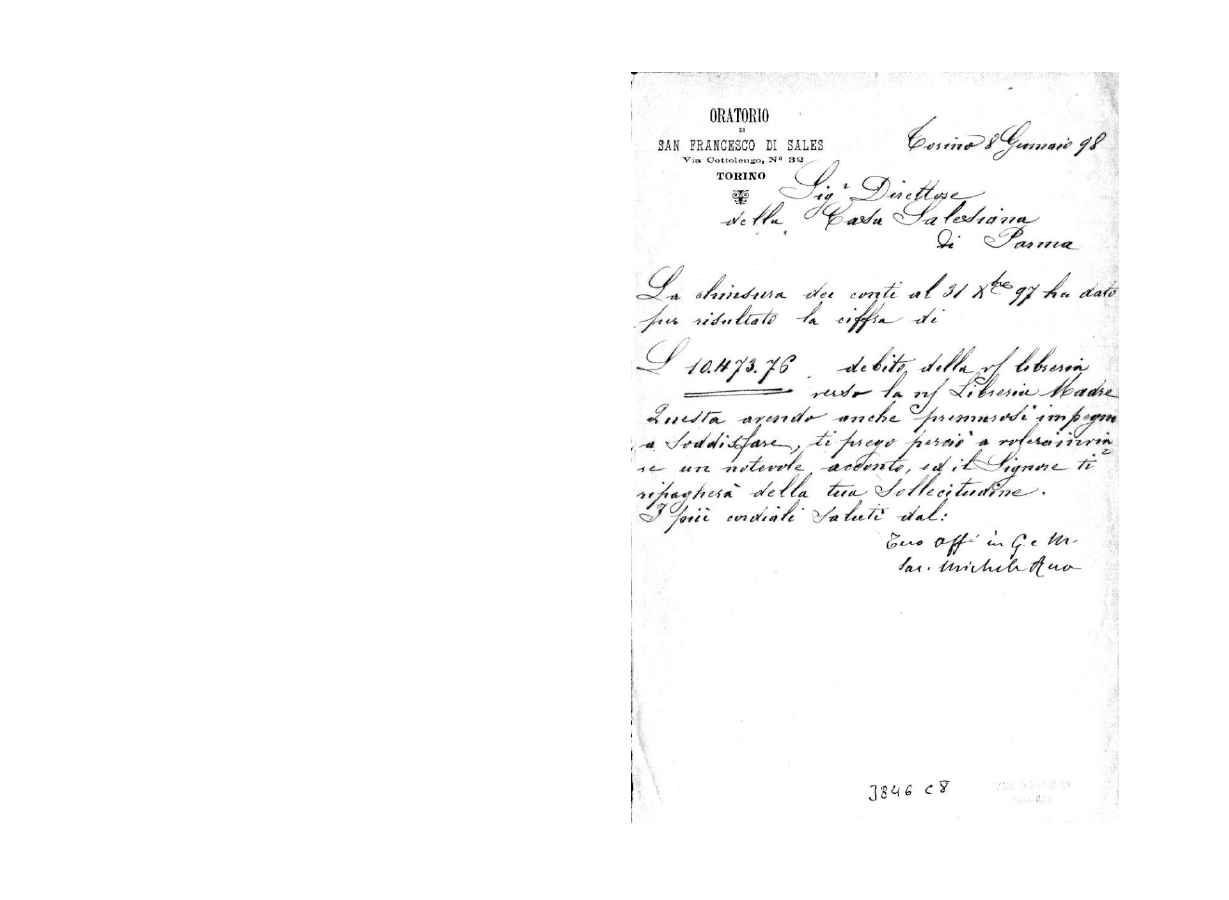 ORATORIO
DI
SAN FRANCESCO DI SALES
Via Cottolengo, Nº 32
TORINO
Torino 8 Gennaio 98
Sigr Direttore
della Casa Salesiana
di Parma
La chiusura dei conti al 31 Xbre 97 ha dato
per risultato la ciffra di
L 10.473.76 debito della v/ libreria
verso la n/ Libreria Madre
Questa avendo anche premurosi impegni
a soddisfare, ti prego perciò a volerci invia
re un notevole acconto, ed il Signore ti
ripagherà della tua sollecitudine.
I più cordiali saluti dal:
Tuo aff in G e M.
Sac. Michele Rua
3846 C8